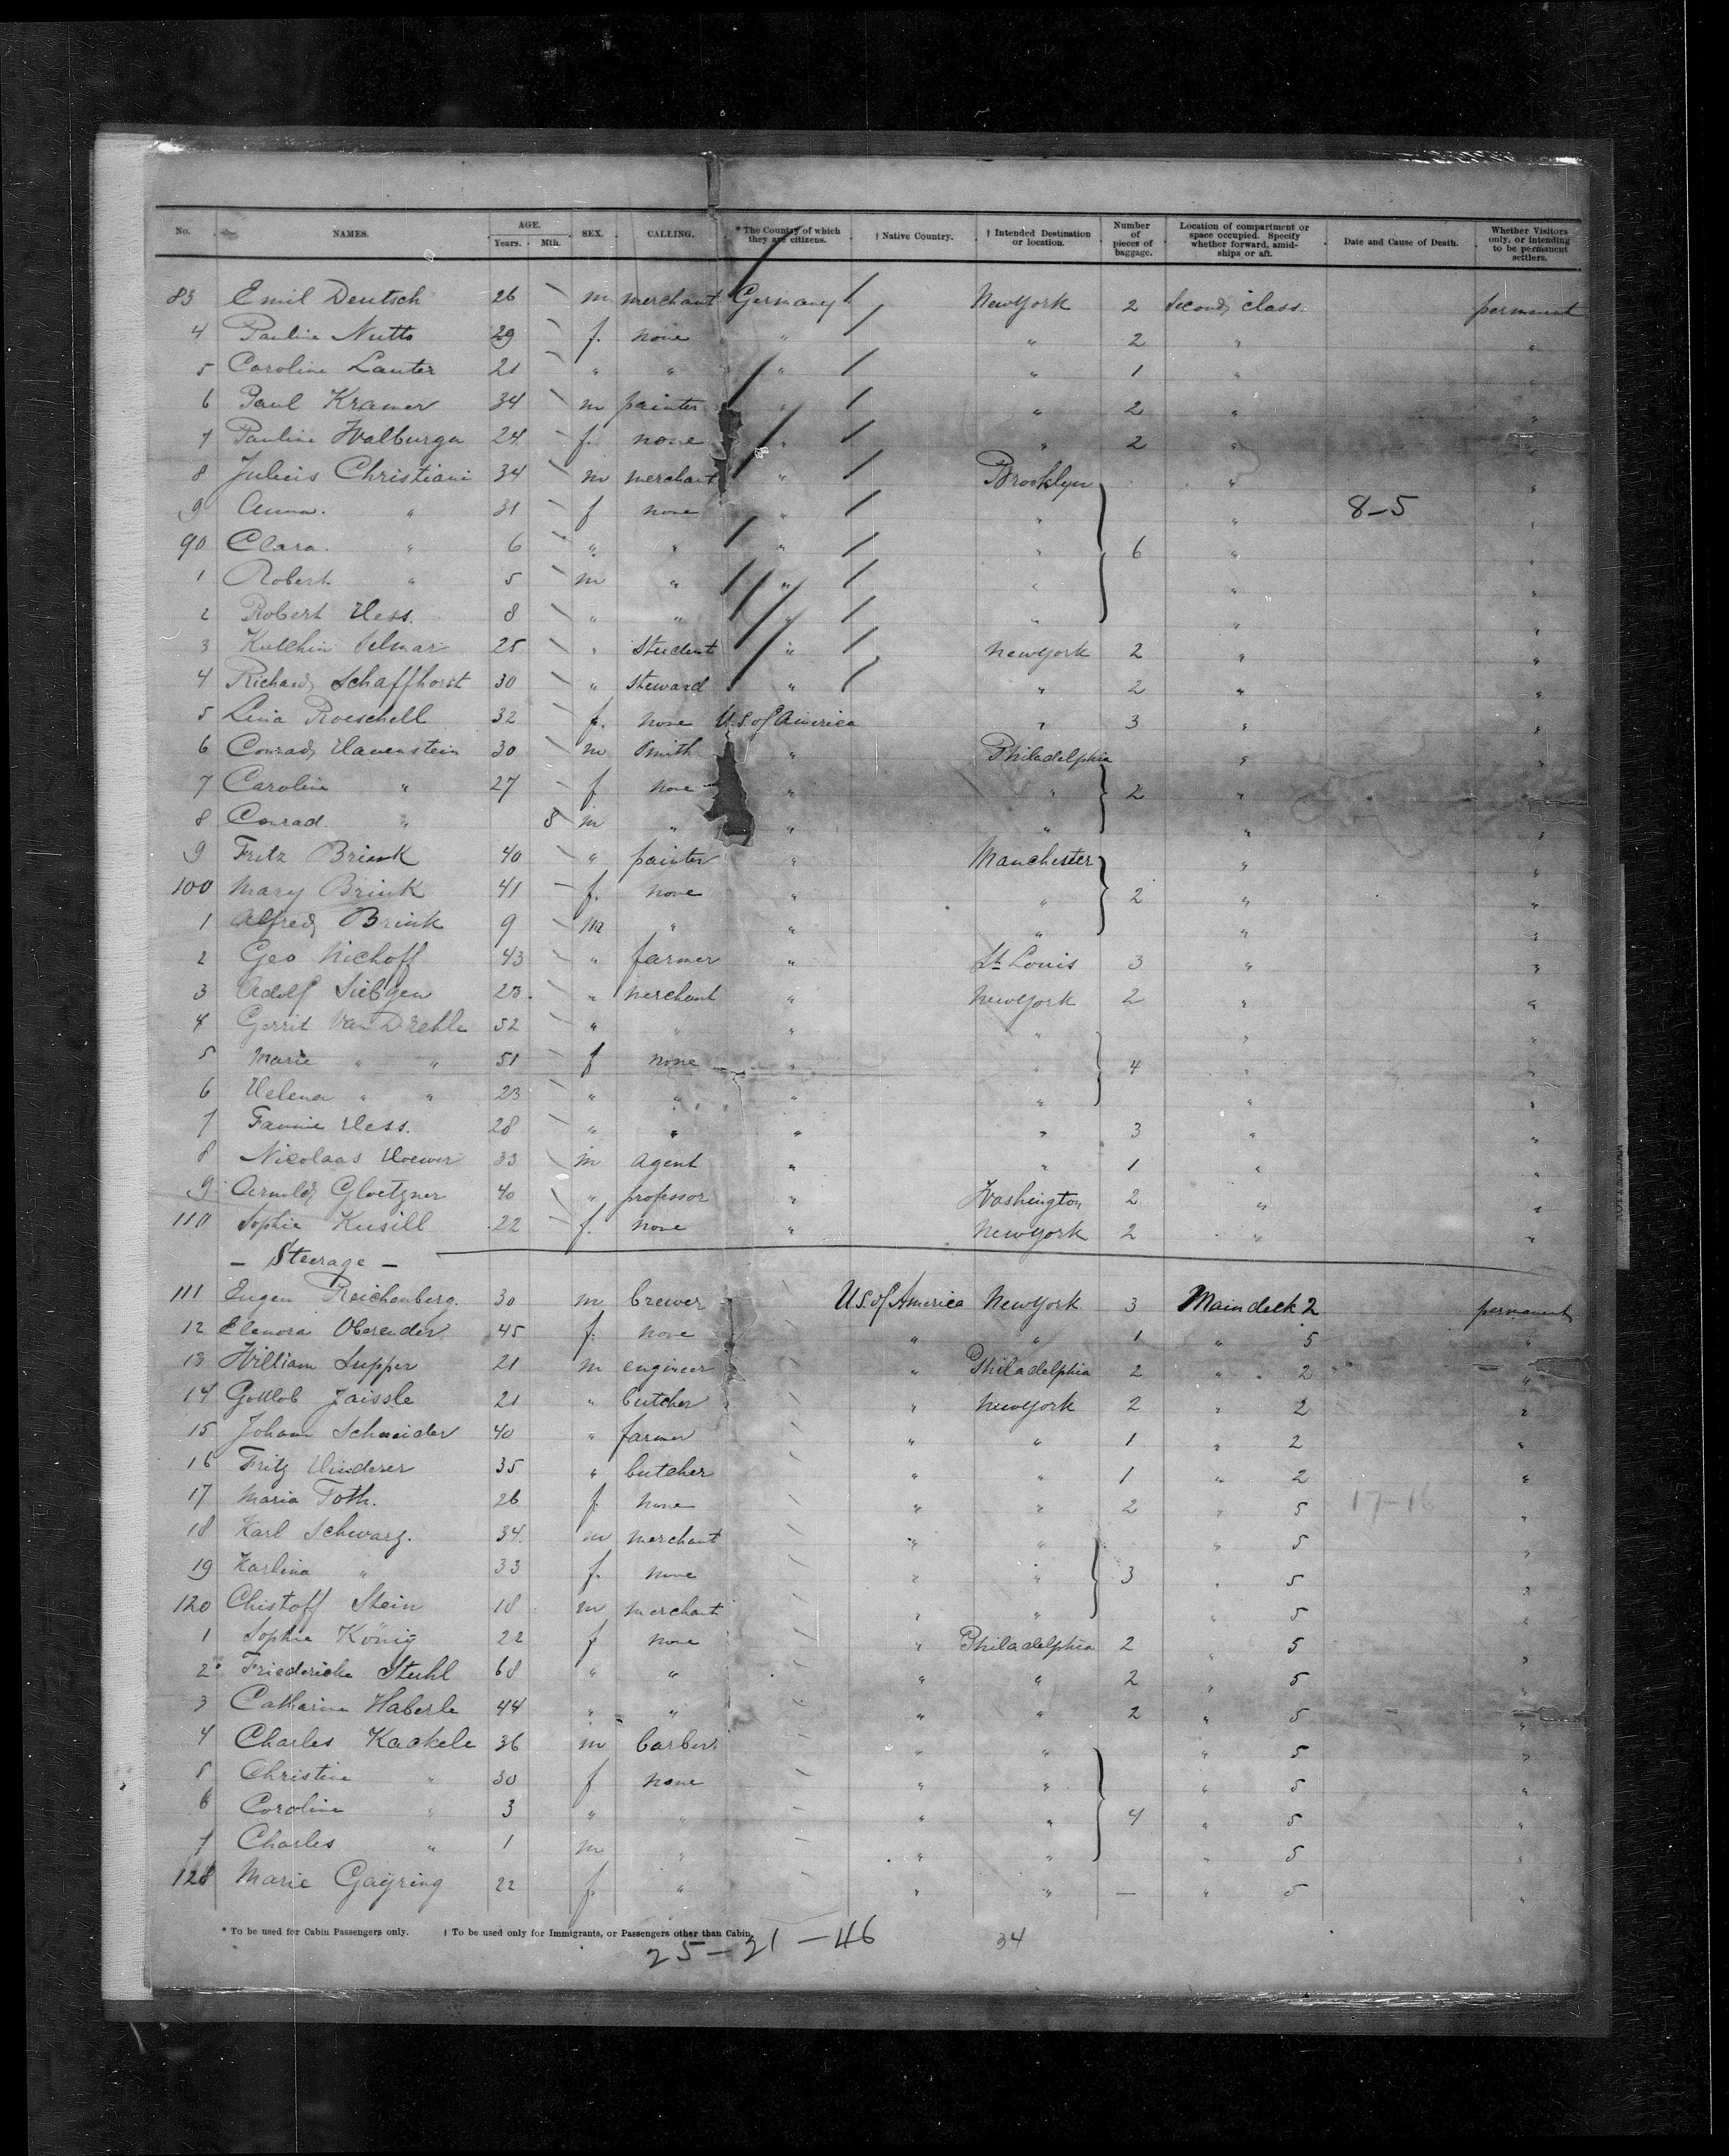 No. NAMES. AGE. Years. Mth. SEX. CALLING. * The Country of which they are citizens. † Native Country. † Intended Destination or location. Number of pieces of baggage. Location of compartment or space occupied. Specify whether forward, amidships or aft. Date and Cause of Death. Whether Visitors only, or intending to be permanent settlers.
83 Emil Deutsch 26 m merchant Germany New York 2 Second class. permanent
4 Pauline Nutto 29 f. none " " 2 " "
5 Caroline Lauter 21 " " " " 1 " "
6 Paul Kramer 34 m painter " " 2 " "
7 Pauline Walburga 24 f. none " " 2 " "
8 Julius Christiani 34 m merchant " Brooklyn " "
9 Anna. " 31 f none " " " 8-5 "
90 Clara. " 6 " " " " 6 " "
1 Robert " 5 m " " " " "
2 Robert Hess. 8 " " " " " "
3 Selmar 25 " Student " New York 2 " "
4 Richard Schaffhorst 30 " steward " " 2 " "
5 Lina Roeschell 32 f. none U.S. of America " 3 " "
6 Conrad Hauenstein 30 m Smith " Philadelphia " "
7 Caroline " 27 f none " " 2 " "
8 Conrad " 8 m " " " " "
9 Fritz Brink 40 " painter " Manchester " "
100 Mary Brink 41 f. none " " 2 " "
1 Alfred Brink 9 m " " " " "
2 Geo Niehoff 43 " farmer " St. Louis 3 " "
3 Adolf Siebgen 23. " merchant " New York 2 " "
4 Gerrit Van Drehle 52 " " " " " "
5 Marie " " 51 f none " " 4 " "
6 Helena " " 23 " " " " " "
7 Fannie Hess. 28 " " " " 3 " "
8 Nicolaas Hoewer 33 m agent " " 1 " "
9 Arnold Gloetzner 40 " professor " Washington 2 " "
110 Sophie Kusill 22 f. none " New York 2 " "
- Steerage -
111 Eugen Reichenberg. 30 m brewer U.S. of America New York 3 Main deck 2 permanent
12 Elenora Oberender 45 f. none " " 1 " 5 "
13 William Supper 21 m engineer " Philadelphia 2 " 2 "
14 Gottlob Jaissle 21 " butcher " New York 2 " 2 "
15 Johann Schneider 40 " farmer " " 1 " 2 "
16 Fritz Hinderer 35 " butcher " " 1 " 2 "
17 Maria Toth. 26 f. none " " 2 " 5 17-16 "
18 Karl Schwarz. 34. m merchant " " " 5 "
19 Karlina " 33 f. none " " 3 " 5 "
120 Chistoff Stein 18 m merchant " " " 5 "
1 Sophie König 22 f none " Philadelphia 2 " 5 "
2 Friedericke Stuhl 68 " " " " 2 " 5 "
3 Catharina Haberle 44 " " " " 2 " 5 "
4 Charles Kaakele 36 m barber " " " 5 "
5 Christine " 30 f none " " " 5 "
6 Coroline " 3 " " " " 4 " 5 "
7 Charles " 1 m " " " " 5 "
128 Marie Gayring 22 f. " " " — " 5 "
* To be used for Cabin Passengers only. † To be used only for Immigrants, or Passengers other than Cabin.
25-21-46 34